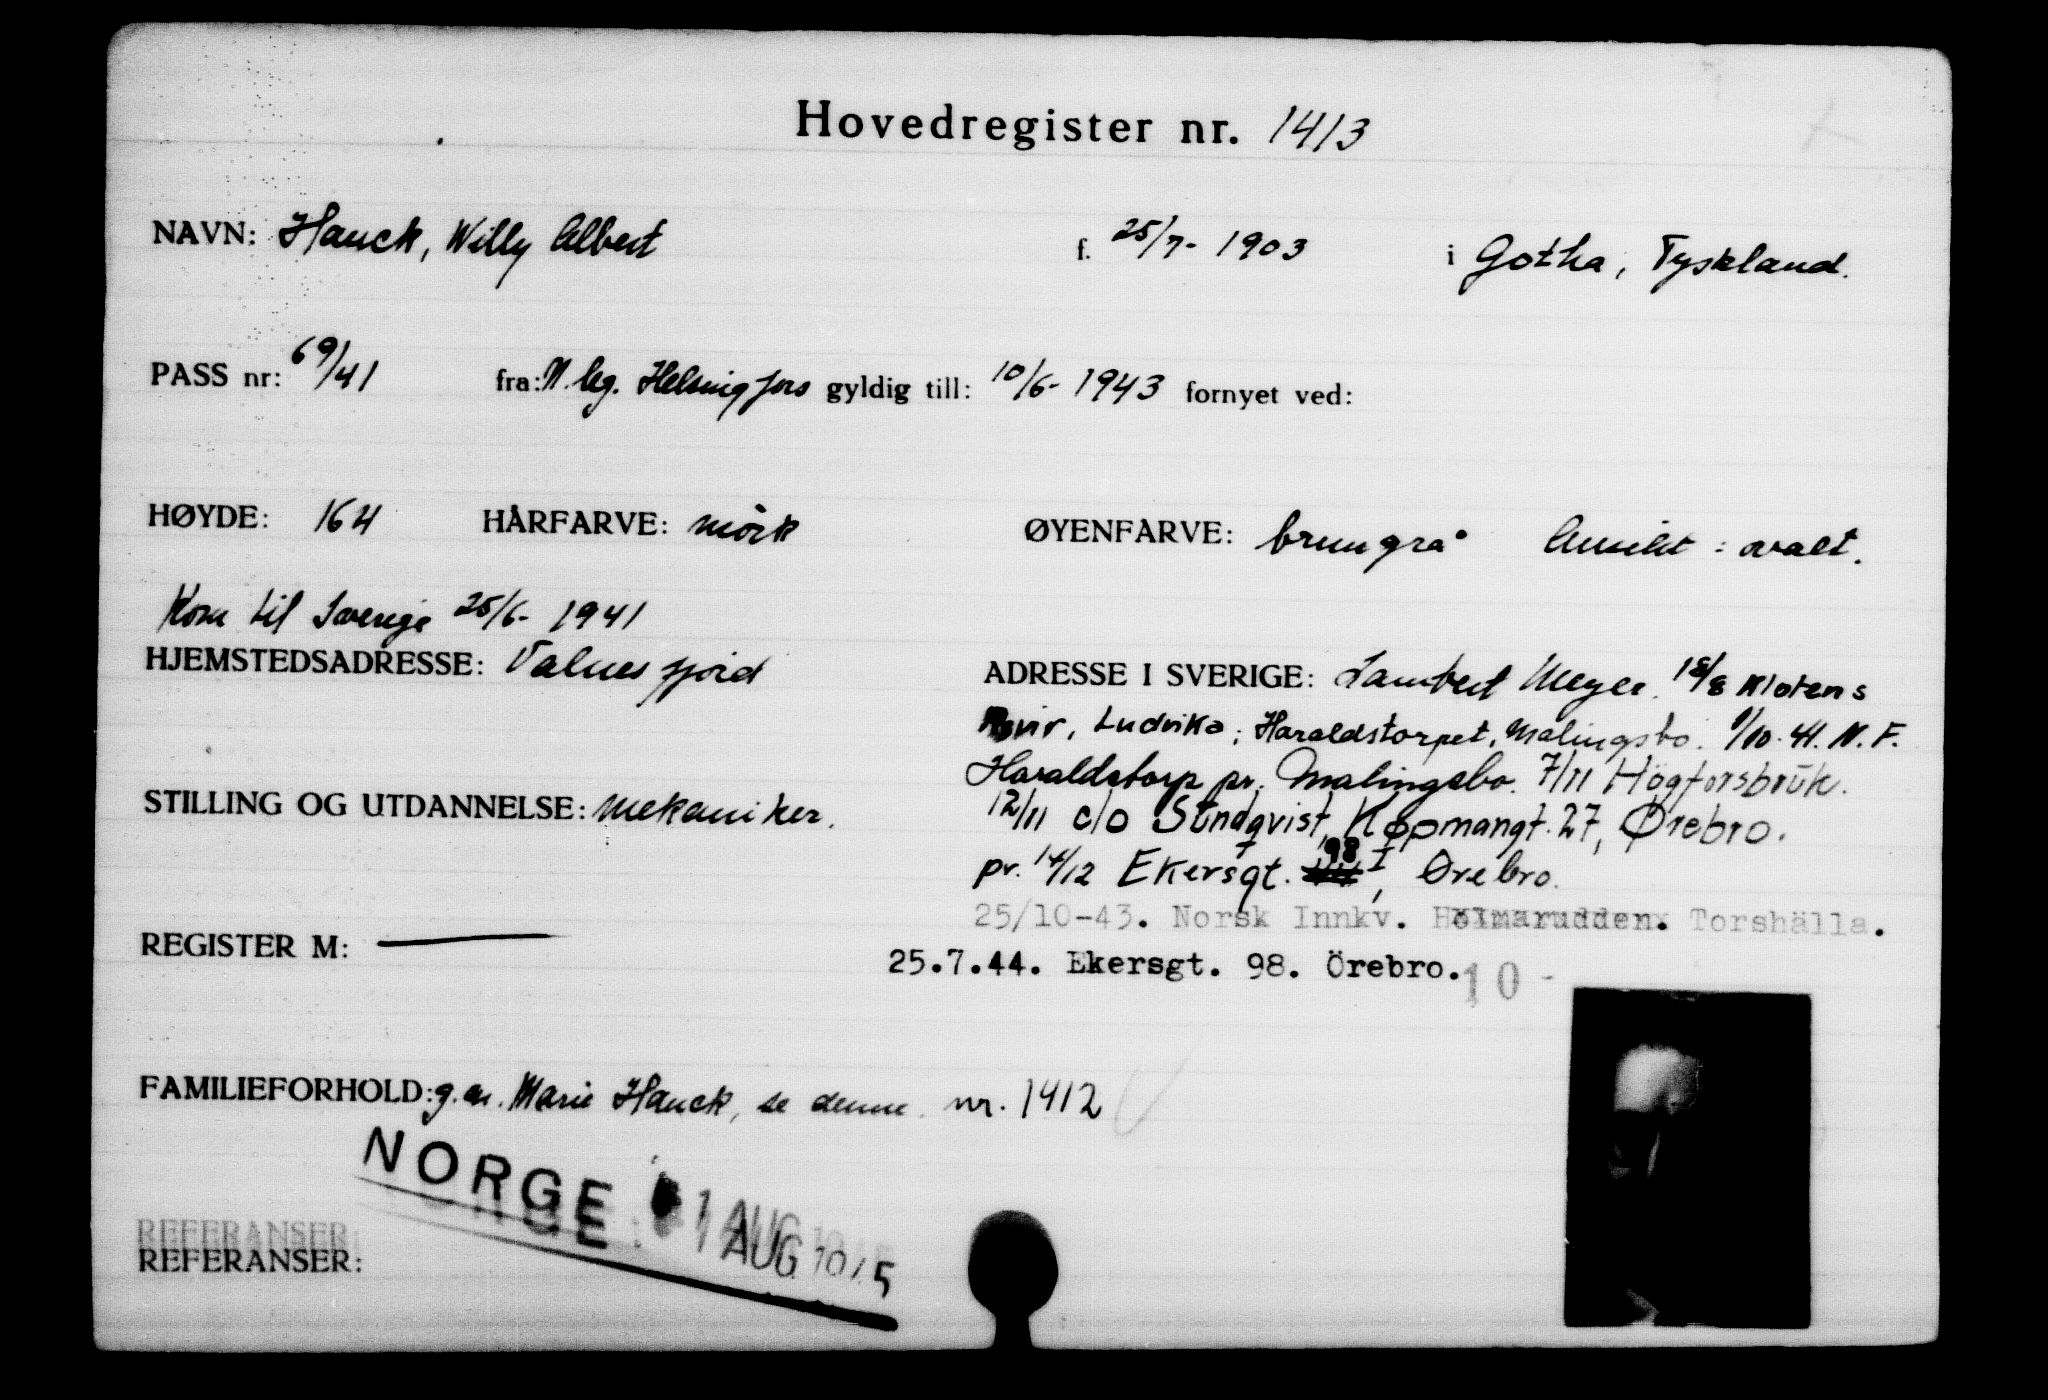 Hovedregister nr. 1413
NAVN: Hauck, Willy Albert f. 25/7- 1903 i Gotha, Tyskland.
PASS nr: 69/41 fra: N. leg. Helsingfors gyldig till: 10/6- 1943 fornyet ved:
HØYDE: 164 HÅRFARVE: mörk ØYENFARVE: brungrå Ansikt: ovalt.
Kom til Sverige 25/6- 1941
HJEMSTEDSADRESSE: Valnesfjord ADRESSE I SVERIGE: Lambert Meyer. 18/8 Klotens
Revir, Ludvika; Haraldstorpet, Malingsbo. 9/10-41. N.F.
Haraldstorp pr. Malingsbo. 7/11 Högforsbruk.
STILLING OG UTDANNELSE: mekaniker. 12/11 c/o Sundqvist, Köpmangt. 27, Ørebro.
pr. 14/12 Ekersgt. 98 I, Ørebro.
25/10-43. Norsk Innkv. Holmarudden. Torshälla.
REGISTER M: —
25.7.44. Ekersgt. 98. Örebro. 10 -
FAMILIEFORHOLD: g.m. Marie Hauck, se denne nr. 1412
NORGE 1 AUG 1945
REFERANSER:
REFERANSER: